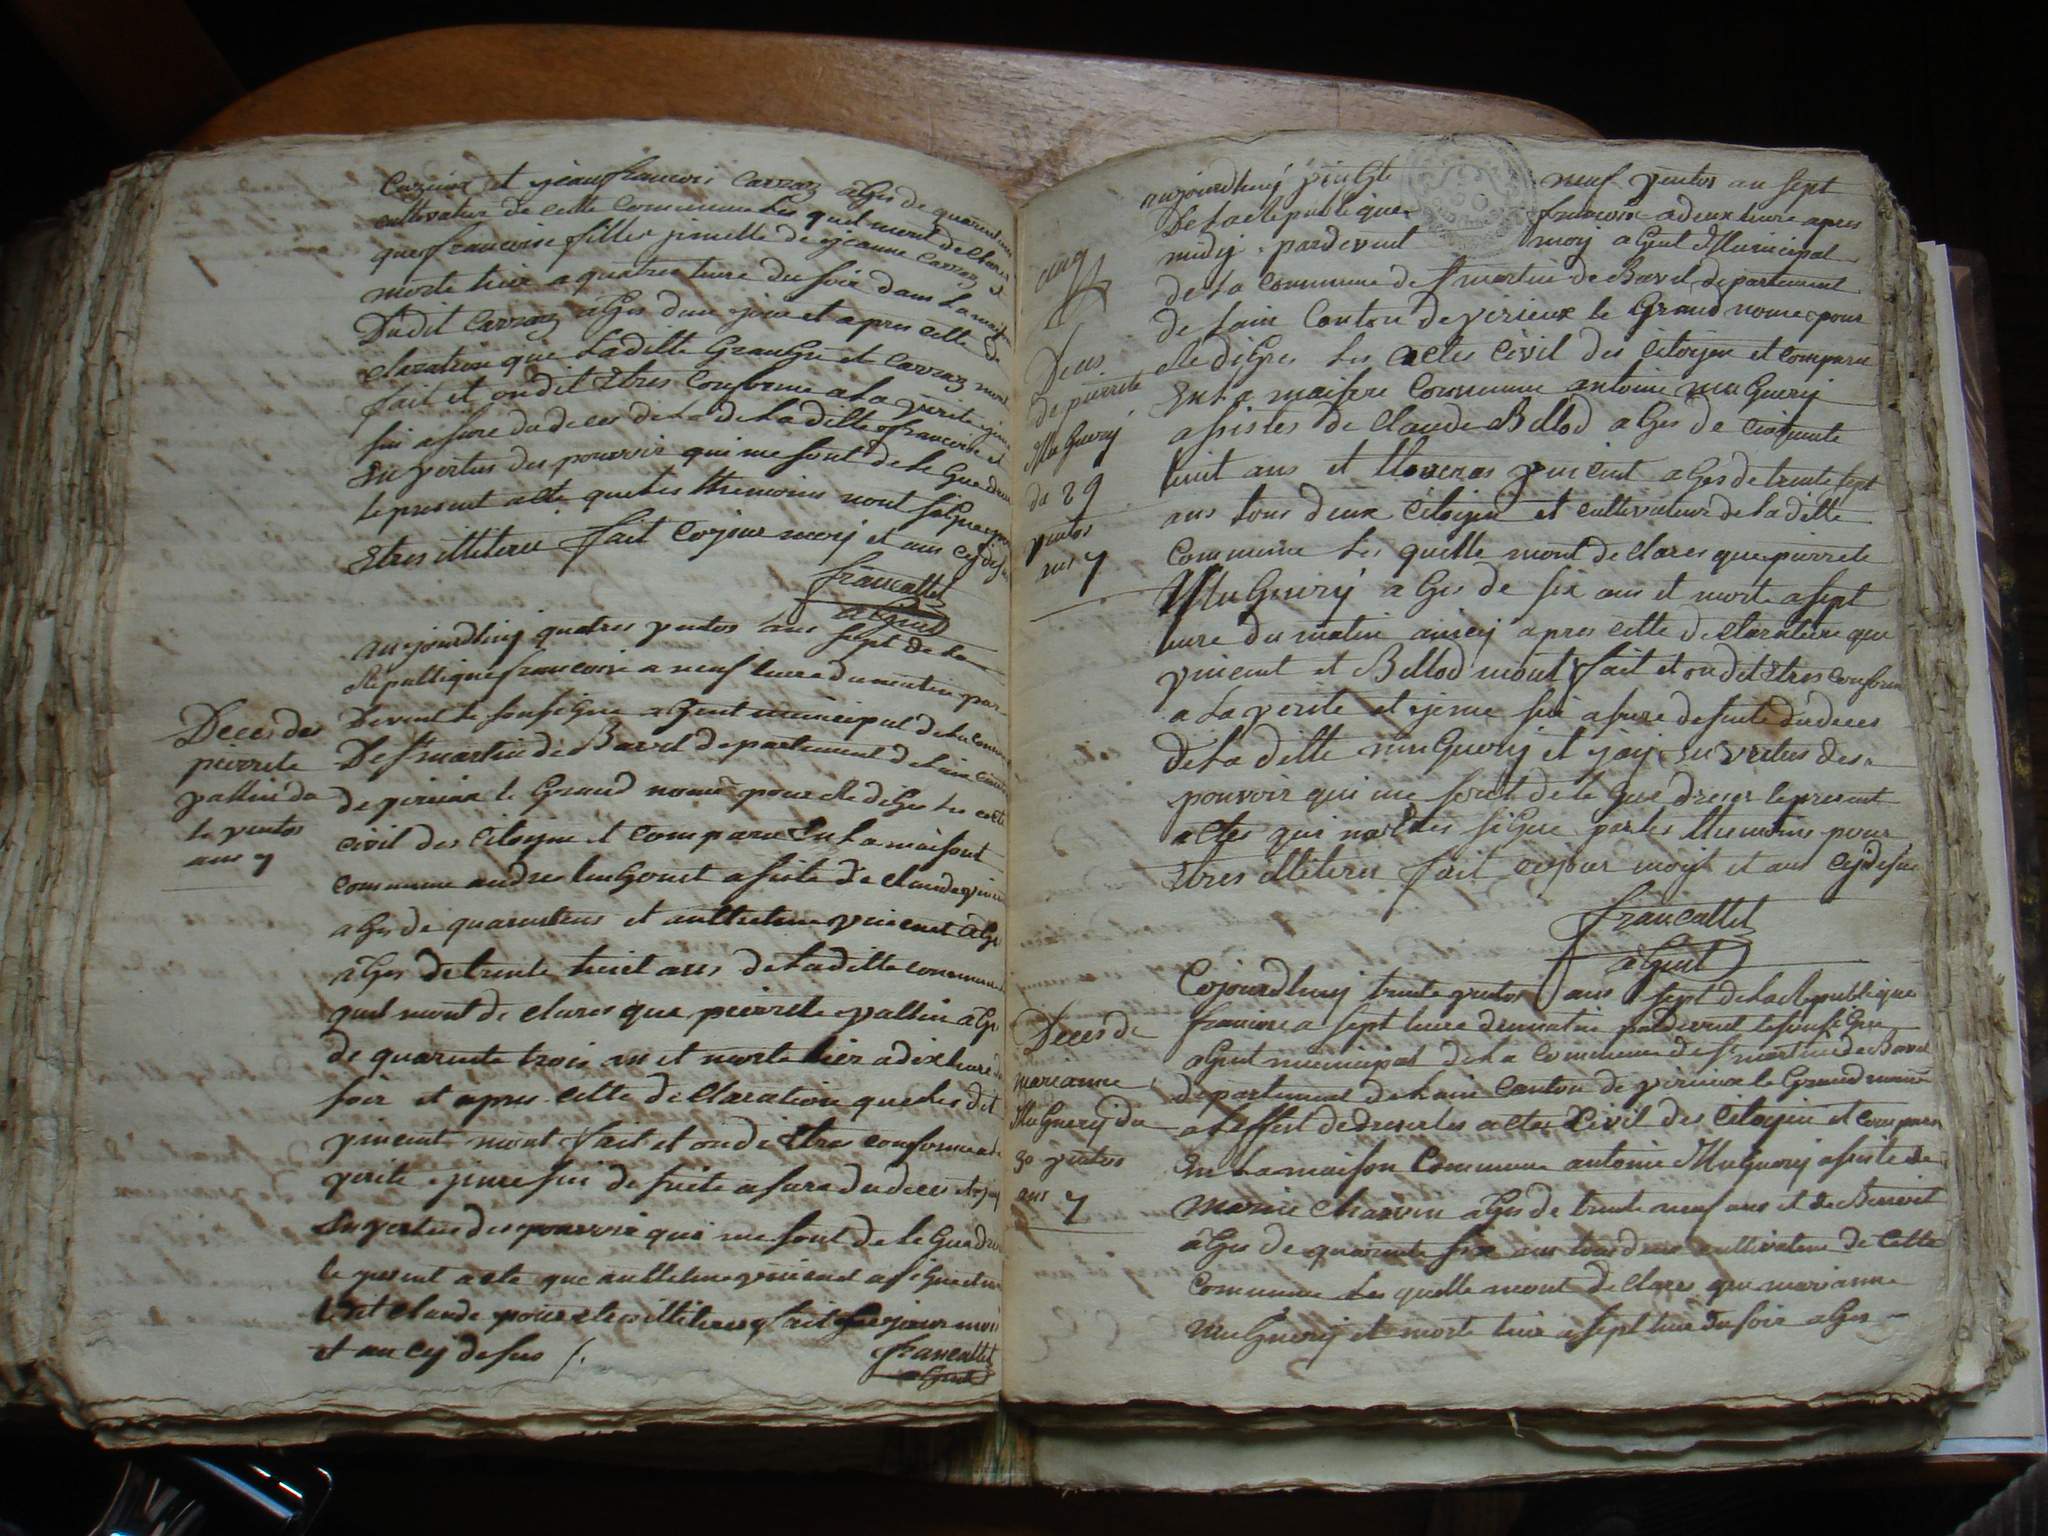 et jeanfrancois carraz agés de quarant ans
cultivateur de cette commune Les quel mont declares
que francoise fillie jumelle de jeanne carraz et
morte hier a quatres heure du soir dans La maison
Dudit Carraz agés dun jour et apres cette de
claration que Laditte Grangé et Carraz mont
fait et ondit Etres Conforme a La verité je me
sui asuré du deces de La de Laditte francoise et
En vertus des pouvoir qui me sont delegué dresse
le present acte que les themoins nont signé pour
Etres illiteré fait cejour mois et ans cy desus
francallet
agent
Deces des
pierrete
vallin du
le ventos
ans 7
aujourdhuy quatres ventos ans sept de La
Republique francoise a neuf heure du matin par
devent le sousigné agent municipal de La commune
De st martin de Bavel departement de Lain canton
de virieux le Grand nomé pour Redigé Les acte
civil des citoyen et comparu En La maisont
commune andre hugonet asisté de claude vincent
agés de quarentens et anthelme vincent agé
agés de trente huit ans de Laditte commune
quel mont declares que pierrete vallin agé
de quarente trois an et morte hier a dix heure du
soir et apres cette declaration que les dit
vincent mont fait et on dit Etres conforme a La
verité je me sui de suite asuré du deces et jay
En vertus des pouvoir qui me sont delegué dresé
le present acte que anthelme vincent a signé et non
Ledit claude pour etres illiteres fait ce jour mois
et an cy desus /.
francallet
agent
cinq
aujourdhuy vingte neuf ventos an sept
De La Republique francoise a deux heure apres
midy pardevent moy agent Municipal
de La commune de st martin de Bavel departement
de Lain Canton de virieux le Grand nomé pour
Rediges Les actes civil des citoyen et comparu
En La maisont commune antoine muguery
asistes de Claude Bellod agés de cinquante
huit ans et vincent agés de trente sept
ans tous deux citoyen et cultivateur de Laditte
commune Les quelle mont declares que pierrete
Muguery agés de six ans et morte a sept
heure du matin ainsy apres cette declaration que
vincent et Bellod mont fait et on dit Etres conforme
a La verité et je me sui asuré de suite du deces
de La ditte muguery et jay En vertus des
pouvoir qui me sont delegué dreser le present
actes qui nont signé par les themoins pour
Etres illiteré fait cejour moys et ans cydesus
francallet
agent
Deces
de pierrete
Muguery
du 29
ventos
ans 7
Cejourdhuy trente ventos ans sept de La Republique
francoise a sept heure du matin pardevent le sousigné
agent municipal de La commune de st martin de Bavel
departement de Lain canton de virieux le Grand nomé
a Leffest de dreser les actes Civil des Citoyen et comparu
En La maison Commune antoine Muguery asisté de
Marie Charvin agés de trente neuf ans et de Benoit
agés de quarente six ans tous deux cultivateur de cette
commune Les quelle mont declares que marianne
muguery et morte hier a sept heure du soir agés
Deces de
marianne
Muguery du
30 ventos
ans 7